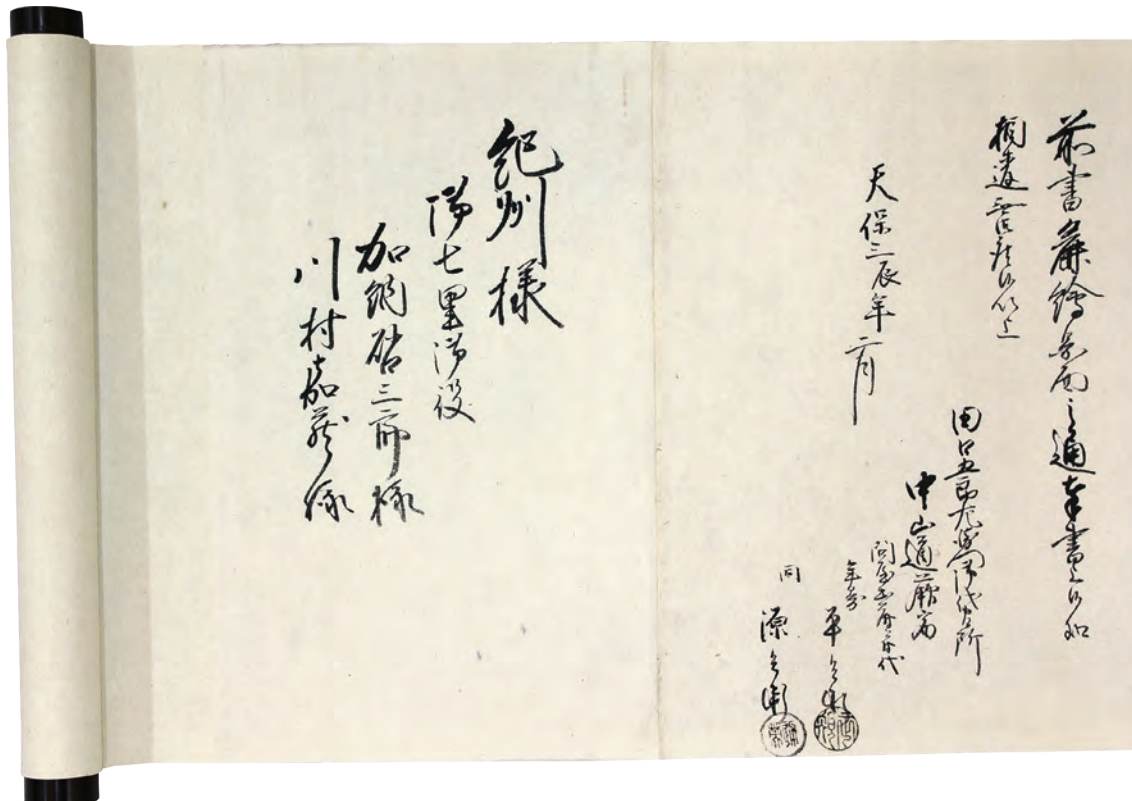 前書并絵図面之通奉書上候処
相違無御座候以上
天保三辰年二月
田口五郎左衛門御代官所
中山道蕨宿
問屋
代
年寄
平兵衛
同
源兵衛
紀州様
御七里御役
加納 三郎様
川村嘉蔵様